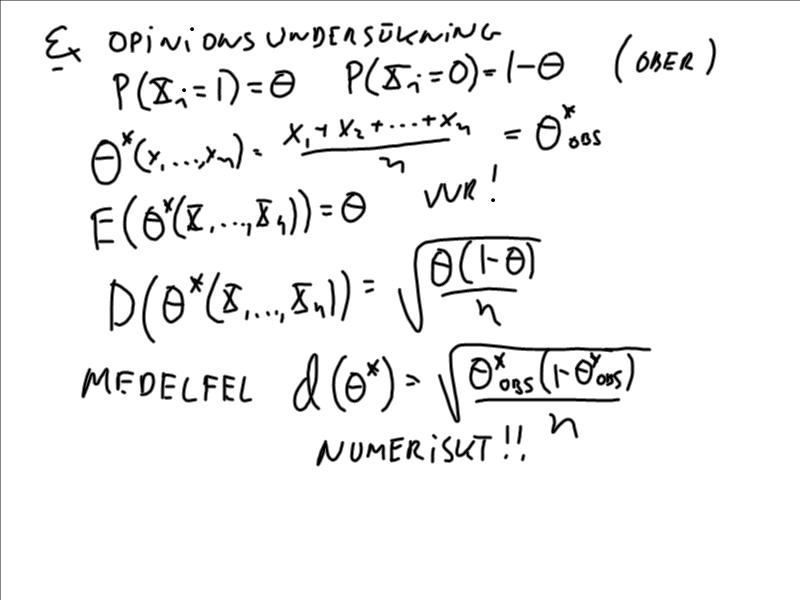 Ex OPINIONSUNDERSÖKNING
P(X_i=1)=θ P(X_i=0)=1-θ (OBER)
θ*(x_1,...,x_n) = (x_1+x_2+...+x_n)/n = θ*_OBS
E(θ*(X,...,X_n))=θ VVR!
D(θ*(X,...,X_n)) = √(θ(1-θ)/n)
MEDELFEL d(θ*) = √(θ*_OBS(1-θ*_OBS)/n)
NUMERISKT!!